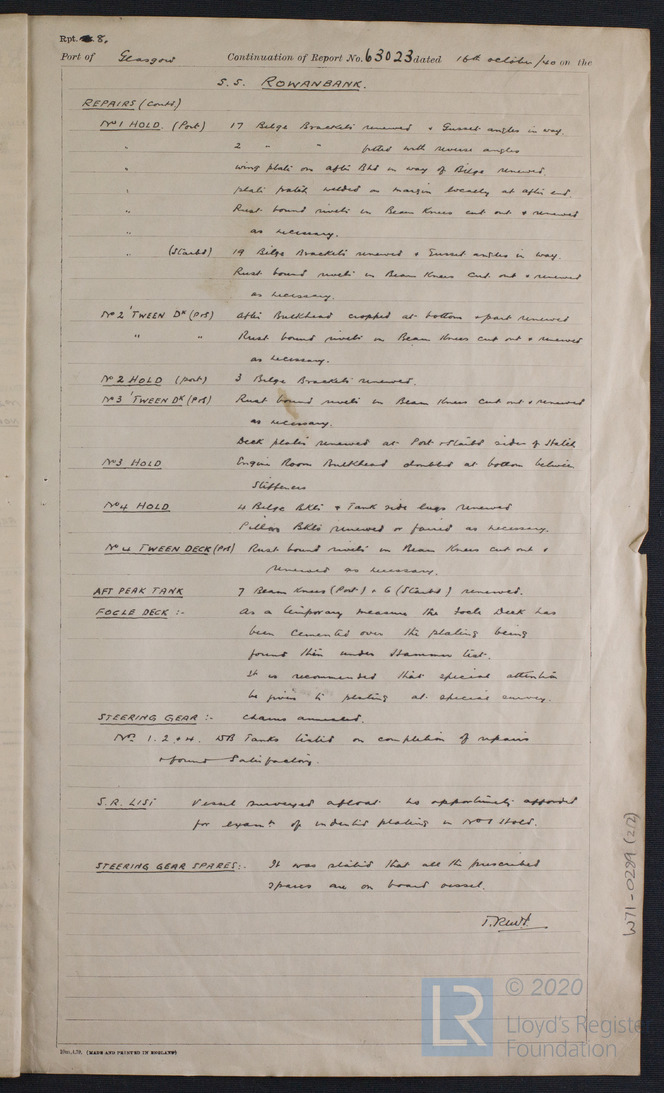 Rpt. 8.
Port of Glasgow Continuation of Report No. 63023 dated 16th october/40 on the
S.S. ROWANBANK.
REPAIRS (Contd)
No 1 HOLD. (Port) 17 Bilge Brackets renewed & Gusset angles in way.
" 2 " " fitted with reverse angles
" wing plate on after Bhd in way of Bilge renewed.
" plate patch welded on margin locally at after end.
" Rust bound rivets in Beam Knees cut out & renewed
" as necessary.
" (Starbd) 19 Bilge Brackets renewed & Gusset angles in way.
Rust bound rivets in Beam Knees cut out & renewed
as necessary.
No 2 'TWEEN DK (P&S) After Bulkhead cropped at bottom & part renewed
" " Rust bound rivets in Beam Knees cut out & renewed
as necessary.
No 2 HOLD (port) 3 Bilge Brackets renewed.
No 3 'TWEEN DK (P&S) Rust bound rivets in Beam Knees cut out & renewed
as necessary.
Deck plates renewed at Port & Starbd sides of Hatch
No 3 HOLD Engine Room Bulkhead doubled at bottom between
Stiffeners
No 4 HOLD 4 Bilge Bkts & Tank side lugs renewed
Pillar Bkts renewed or faired as necessary.
No 4 TWEEN DECK (P&S) Rust bound rivets in Beam Knees cut out &
renewed as necessary.
AFT PEAK TANK 7 Beam Knees (Port) & 6 (Starbd) renewed.
FOCLE DECK :- As a temporary measure the focle Deck has
been cemented over the plating being
found thin under Hammer test.
It is recommended that special attention
be given to plating at special survey.
STEERING GEAR :- chains annealed.
Nos 1. 2 & 4. WB Tanks tested on completion of repairs
& found Satisfactory.
S.R. LIST Vessel surveyed afloat no opportunity afforded
for examn of indented plating in No 1 Hold.
STEERING GEAR SPARES:- It was stated that all the prescribed
spares are on board vessel.
(MADE AND PRINTED IN ENGLAND)
W71-0289 (2/2)
LR © 2020
Lloyd's Register
Foundation